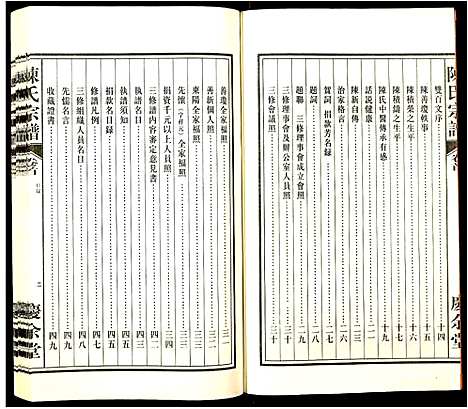 陳氏宗譜
卷首
慶余堂
雙百文序 十四
陳善瓊軼事 十五
陳積榮之生平 十六
陳積鑄之生平 十七
陳氏中醫傳承有感 十九
話説健康 十九
陳新自傳 二一
治家格言 二六
賀詞 捐款芳名録
題詞
題聯 三修理事會成立會照
三修理事會及辦公室人員照 三十
三修會議照 三十
善瓊全家福照 三一
善新個人照 三二
東陽全家福照 三三
先懷(字祥元)全家福照
捐資千元以上人員照 三四
三修内容審定意見書 三五
執譜須知 四五
執譜名目 四五
捐款名目録
修譜凡例 四七
三修組織人員名目 四八
先儒名言 四九
收藏證書 四九
陳氏宗譜
卷首
目録
二
慶余堂